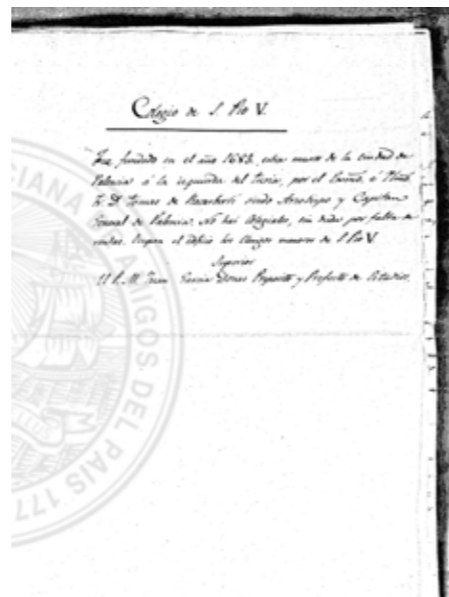 Colegio de S. Pio V.
Fue fundado en el año 1683, extra muros de la ciudad de
Valencia á la izquierda del Turia, por el Excmo. é Illmo.
Sr. D. Tomas de Rocaberti siendo Arzobispo y Capitan
General de Valencia. No hai Colegiales, sin duda por falta de
rentas. Ocupan el edificio los Clerigos menores de S. Pio V.
Superior
El P. M. Juan Garcia Preposito y Prefecto de Estudios.
CIANA
AMIGOS DEL PAIS 177